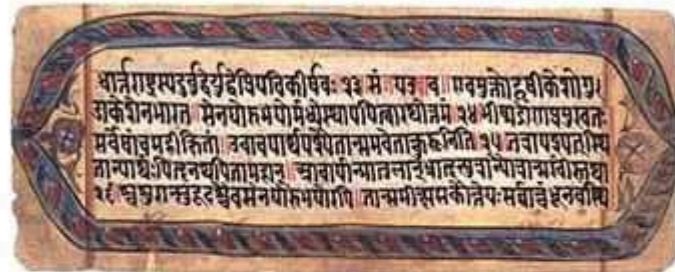 धार्तराष्ट्रस्यदुर्बुद्धेर्युद्धेप्रियचिकीर्षवः २३ एवमुक्तोहृषीकेशोगु
डाकेशेनभारत सेनयोरुभयोर्मध्येस्थापयित्वारथोत्तमं २४ भीष्मद्रोणप्रमुखतः
सर्वेषांचमहीक्षितां उवाचपार्थपश्यैतान्समवेतान्कुरूनिति २५ तत्रापश्यत्स्थि
तान्पार्थःपितॄनथपितामहान् आचार्यान्मातुलान्भ्रातॄन्पुत्रान्पौत्रान्सखींस्तथा
२६ श्वशुरान्सुहृदश्चैवसेनयोरुभयोरपि तान्समीक्ष्यसकौन्तेयःसर्वान्बंधूनवस्थि